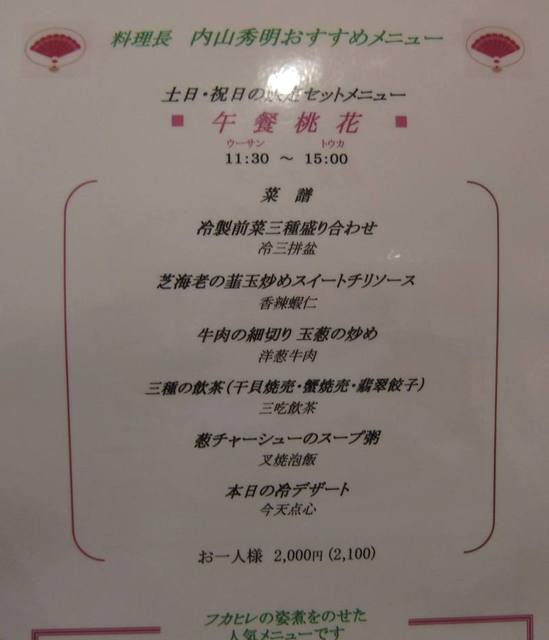 料理長　内山秀明おすすめメニュー
土日・祝日の セットメニュー
■ 午餐桃花 ■
ウーサン　トウカ
11:30 ～ 15:00
菜　譜
冷製前菜三種盛り合わせ
冷三拼盆
芝海老の韮玉炒めスイートチリソース
香辣蝦仁
牛肉の細切り 玉葱の炒め
洋葱牛肉
三種の飲茶（干貝焼売・蟹焼売・翡翠餃子）
三吃飲茶
葱チャーシューのスープ粥
叉焼泡飯
本日の冷デザート
今天点心
お一人様 2,000円（2,100）
フカヒレの姿煮をのせた
人気メニューです